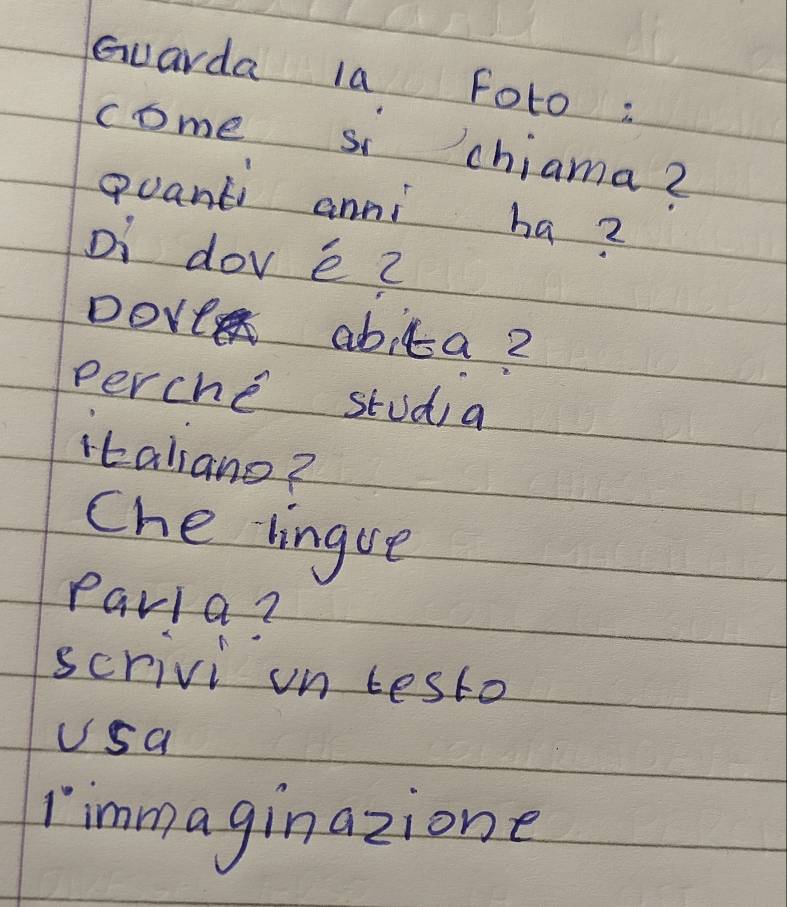 Guarda la Foto :
come si chiama?
Quanti anni ha ?
Di dov é ?
Dove abita ?
Perché studia
italiano?
Che lingue
Parla?
scrivi un testo
usa
l'immaginazione